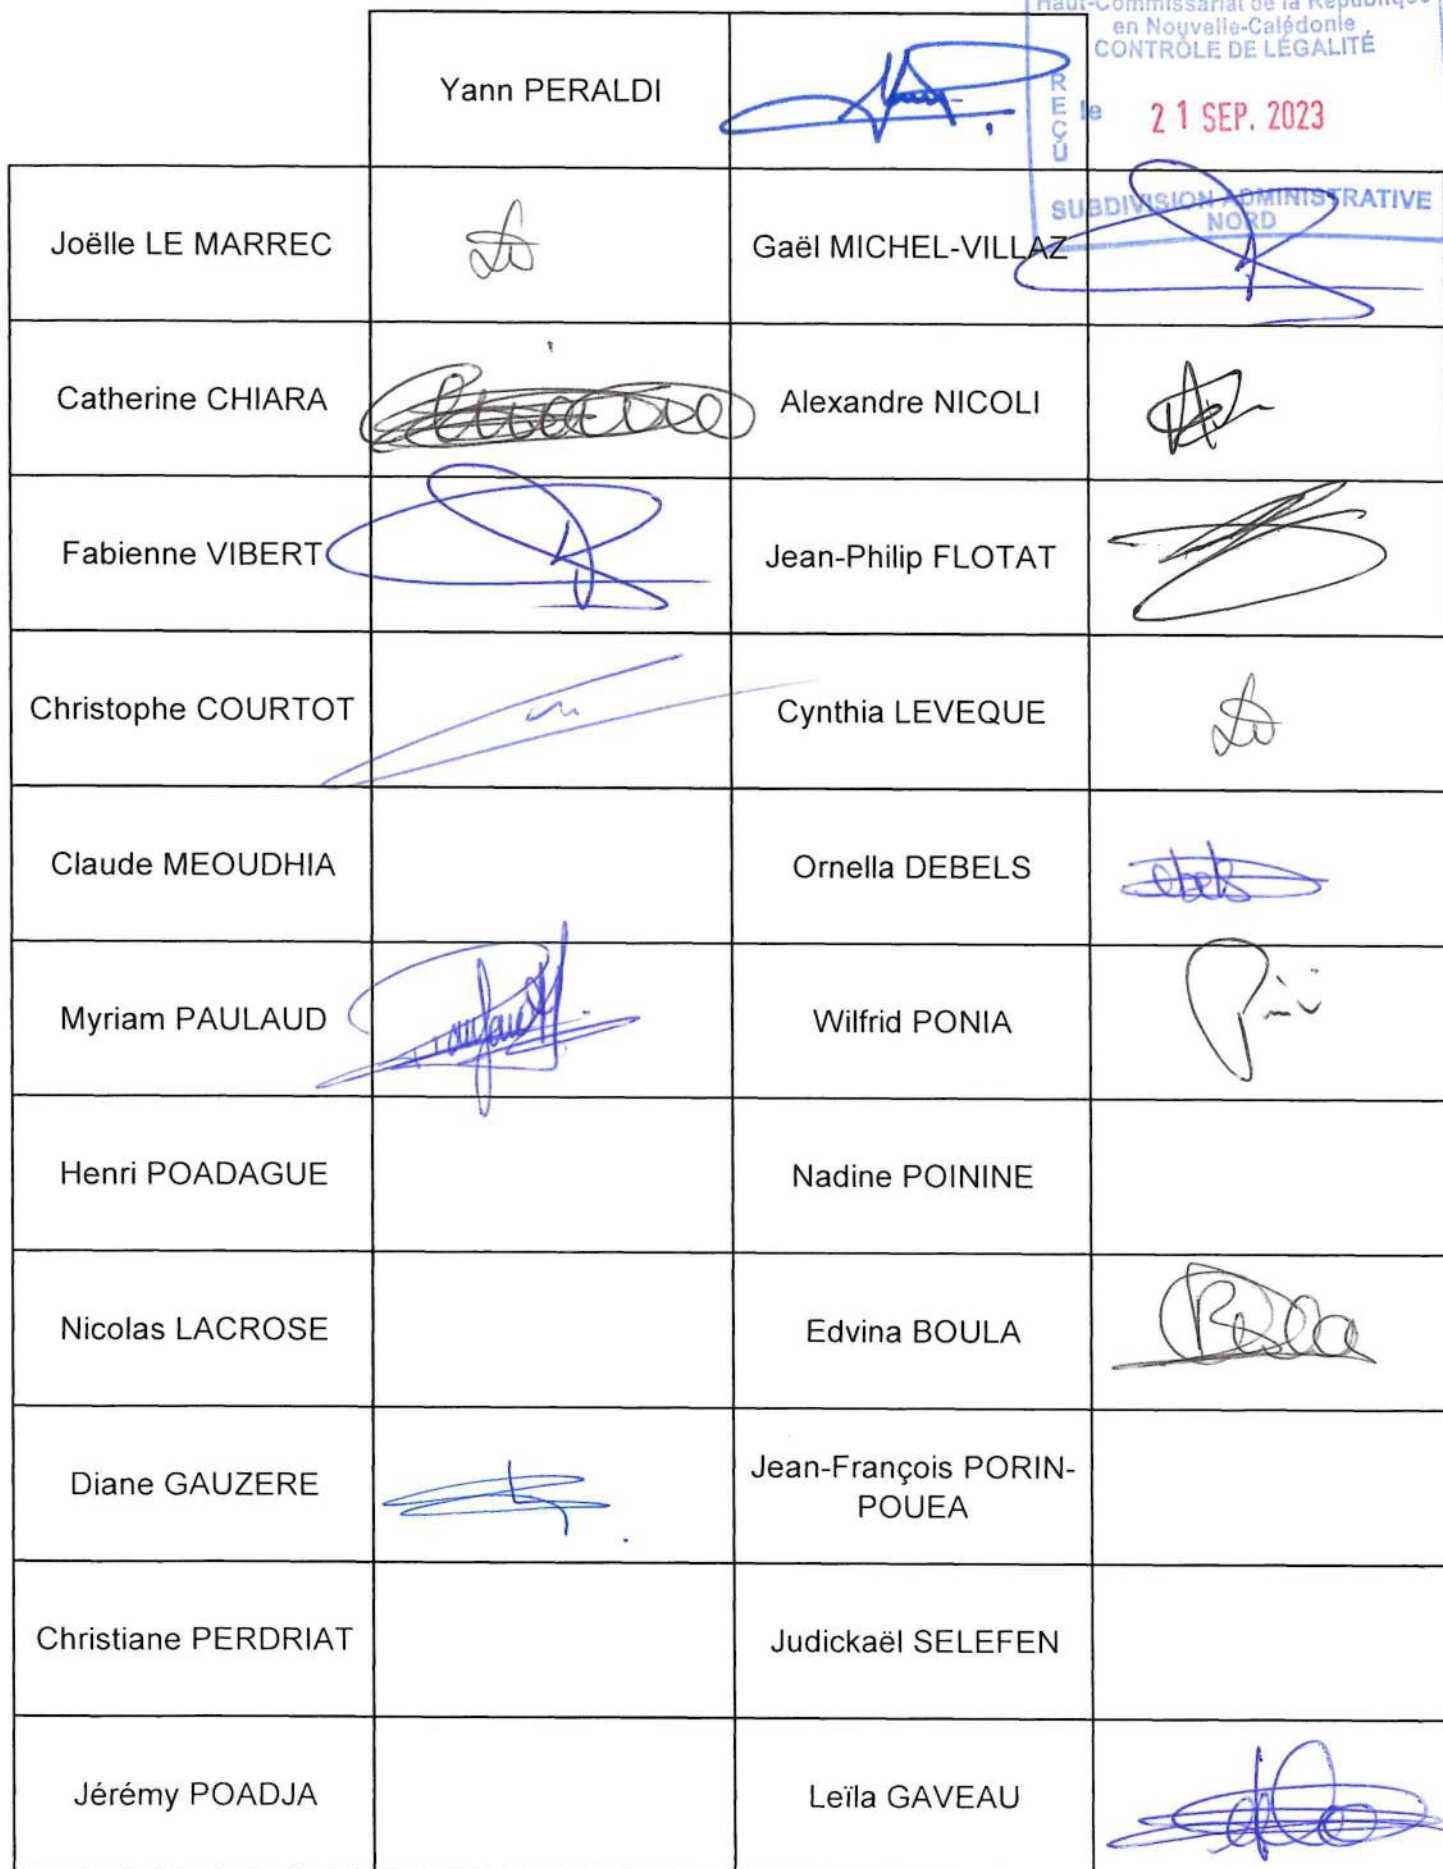 Haut-Commissariat de la République
en Nouvelle-Calédonie
CONTRÔLE DE LÉGALITÉ
REÇU
le 21 SEP. 2023
SUBDIVISION ADMINISTRATIVE
NORD
Yann PERALDI
Joëlle LE MARREC
Gaël MICHEL-VILLAZ
Catherine CHIARA
Alexandre NICOLI
Fabienne VIBERT
Jean-Philip FLOTAT
Christophe COURTOT
Cynthia LEVEQUE
Claude MEOUDHIA
Ornella DEBELS
Myriam PAULAUD
Wilfrid PONIA
Henri POADAGUE
Nadine POININE
Nicolas LACROSE
Edvina BOULA
Diane GAUZERE
Jean-François PORIN-
POUEA
Christiane PERDRIAT
Judickaël SELEFEN
Jérémy POADJA
Leïla GAVEAU